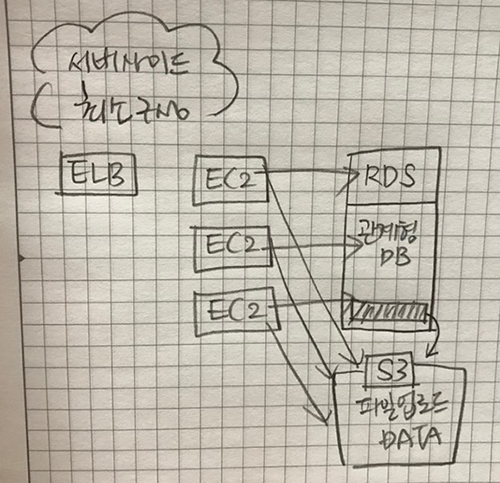 서버사이드
최소구성
ELB
EC2
EC2
EC2
RDS
관계형
DB
S3
파일업로드
DATA